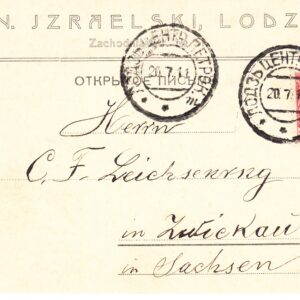 N. JZRAELSKI, LODZ
ОТКРЫТОЕ ПИСЬМО
ЛОДЗЬ ЦЕНТР.
20.7.11
ЛОДЗЬ ЦЕНТ
20.7.1
Herrn
C. F. Leichsenring
in Zwickau
in Sachsen